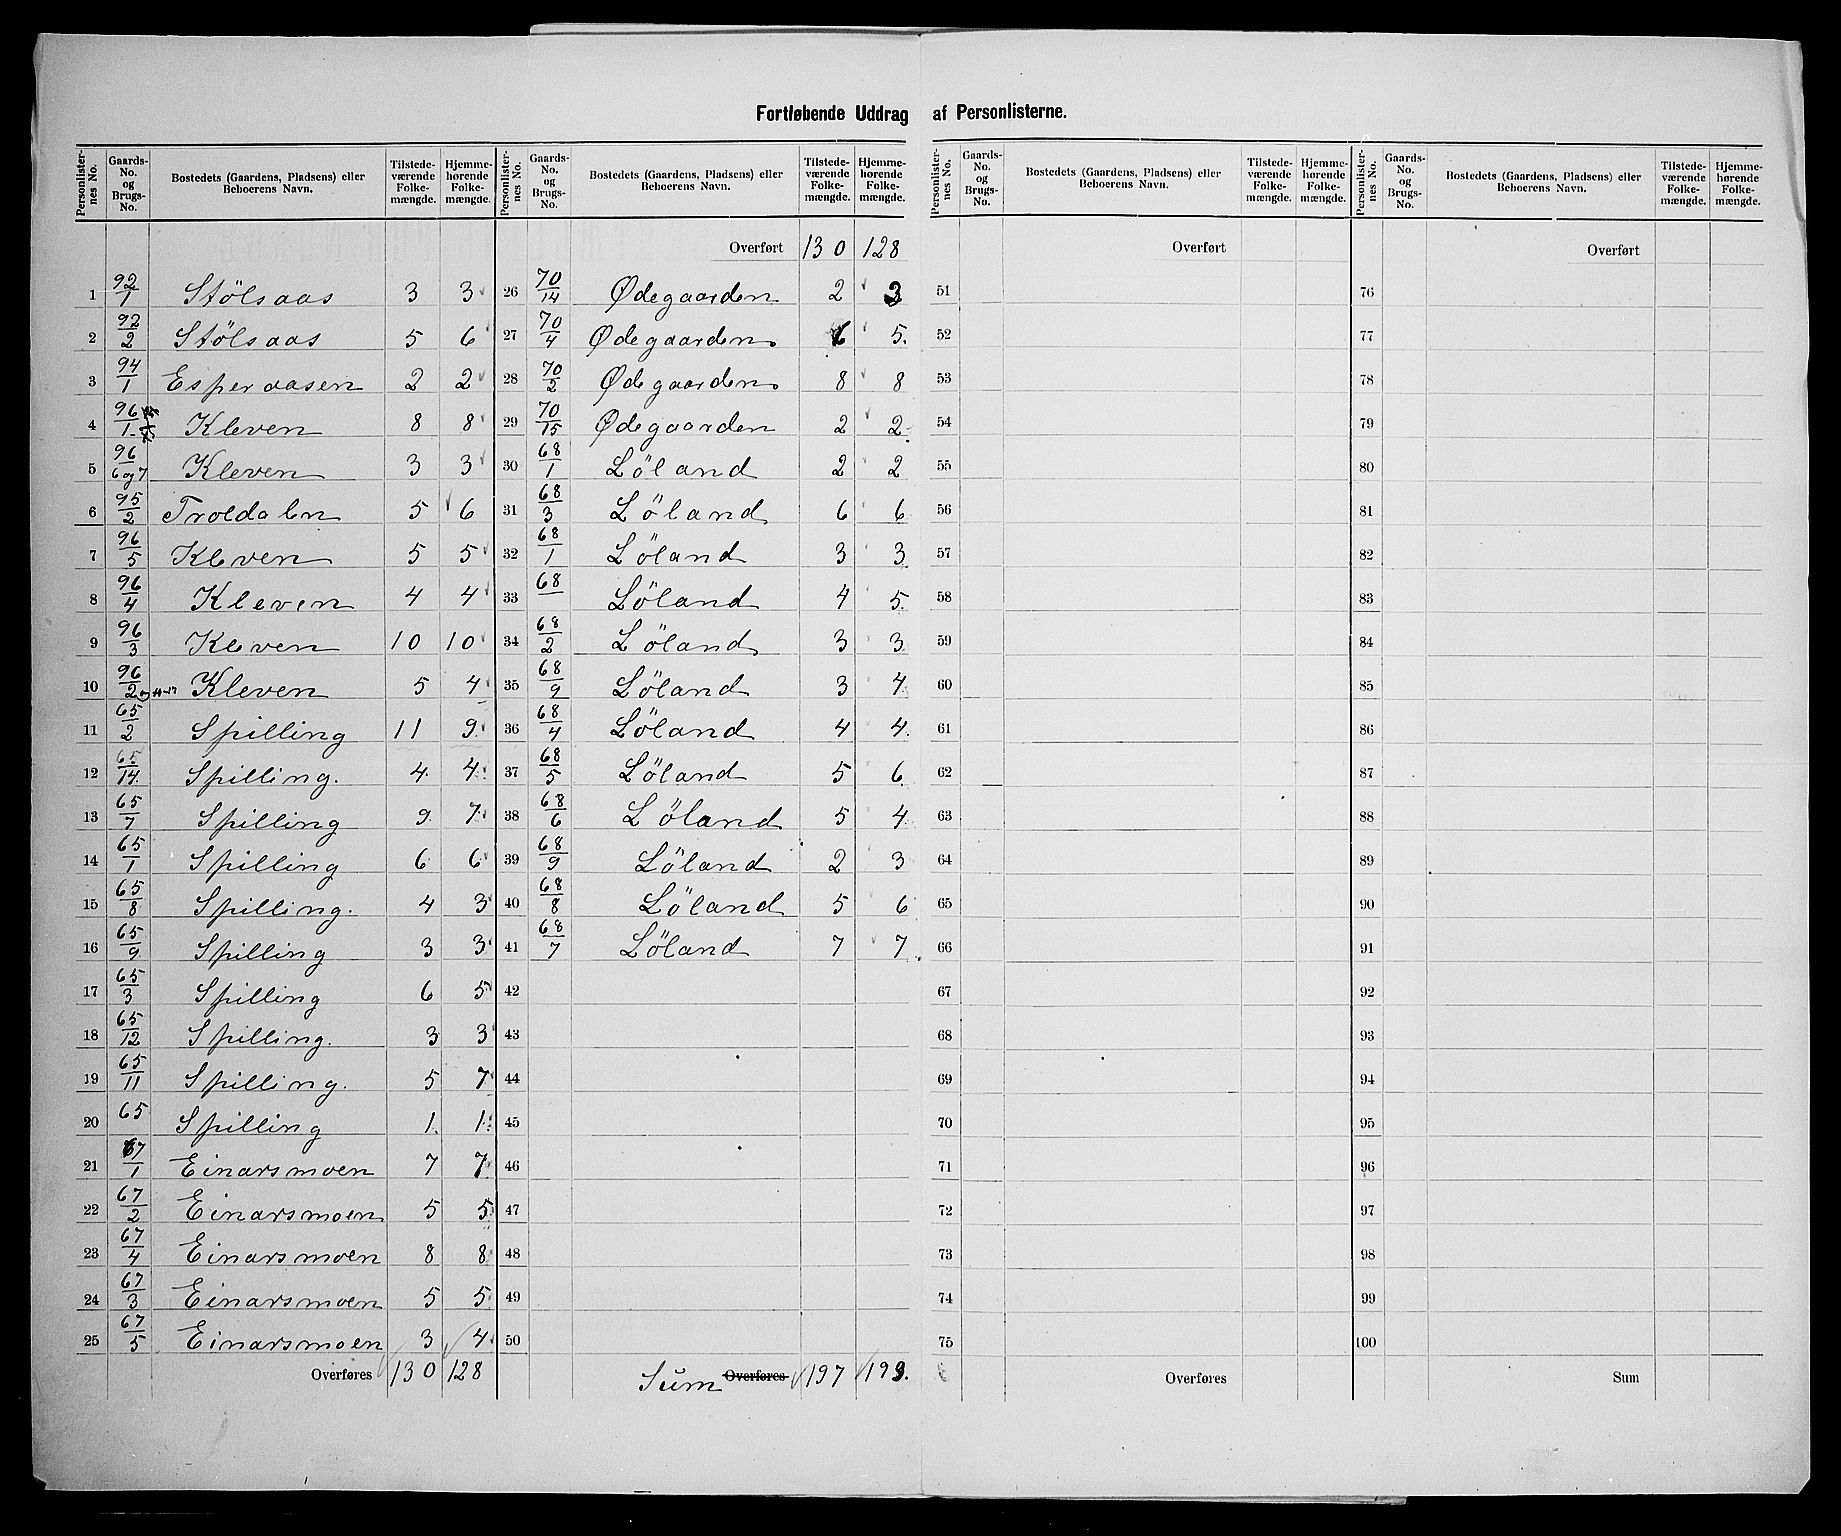 Fortløbende Uddrag af Personlisterne.
Personlister-nes No. | Gaards-No. og Brugs-No. | Bostedets (Gaardens, Pladsens) eller Beboerens Navn. | Tilstede-værende Folke-mængde. | Hjemme-hørende Folke-mængde.
1 92/1 Stölsaas 3 3
2 92/2 Stölsaas 5 6
3 94/1 Esperaasen 2 2
4 96/1 Kleven 8 8
5 96/6 og 7 Kleven 3 3
6 95/2 Troldalen 5 6
7 96/5 Kleven 5 5
8 96/4 Kleven 4 4
9 96/3 Kleven 10 10
10 96/2 Kleven 5 4
11 65/2 Spilling 11 9
12 65/14 Spilling. 4 4
13 65/7 Spilling 9 7
14 65/1 Spilling 6 6
15 65/8 Spilling. 4 3
16 65/9 Spilling 3 3
17 65/3 Spilling 6 5
18 65/12 Spilling. 3 3
19 65/11 Spilling. 5 7
20 65 Spilling 1 1
21 67/1 Einarsmoen 7 7
22 67/2 Einarsmoen 5 5
23 67/4 Einarsmoen 8 8
24 67/3 Einarsmoen 5 5
25 67/5 Einarsmoen 3 4
Overføres 130 128
Personlister-nes No. | Gaards-No. og Brugs-No. | Bostedets (Gaardens, Pladsens) eller Beboerens Navn. | Tilstede-værende Folke-mængde. | Hjemme-hørende Folke-mængde.
Overført 130 128
26 70/14 Ødegaarden 2 3
27 70/4 Ødegaarden 6 5
28 70/2 Ødegaarden 8 8
29 70/15 Ødegaarden 2 2
30 68/1 Löland 2 2
31 68/3 Löland 6 6
32 68/1 Löland 3 3
33 68 Löland 4 5
34 68/2 Löland 3 3
35 68/9 Löland 3 4
36 68/4 Löland 4 4
37 68/5 Löland 5 6
38 68/6 Löland 5 4
39 68/9 Löland 2 3
40 68/8 Löland 5 6
41 68/7 Löland 7 7
42
43
44
45
46
47
48
49
50
Sum Overføres 197 199.
Personlister-nes No. | Gaards-No. og Brugs-No. | Bostedets (Gaardens, Pladsens) eller Beboerens Navn. | Tilstede-værende Folke-mængde. | Hjemme-hørende Folke-mængde.
Overført
51
52
53
54
55
56
57
58
59
60
61
62
63
64
65
66
67
68
69
70
71
72
73
74
75
Overføres
Personlister-nes No. | Gaards-No. og Brugs-No. | Bostedets (Gaardens, Pladsens) eller Beboerens Navn. | Tilstede-værende Folke-mængde. | Hjemme-hørende Folke-mængde.
Overført
76
77
78
79
80
81
82
83
84
85
86
87
88
89
90
91
92
93
94
95
96
97
98
99
100
Sum